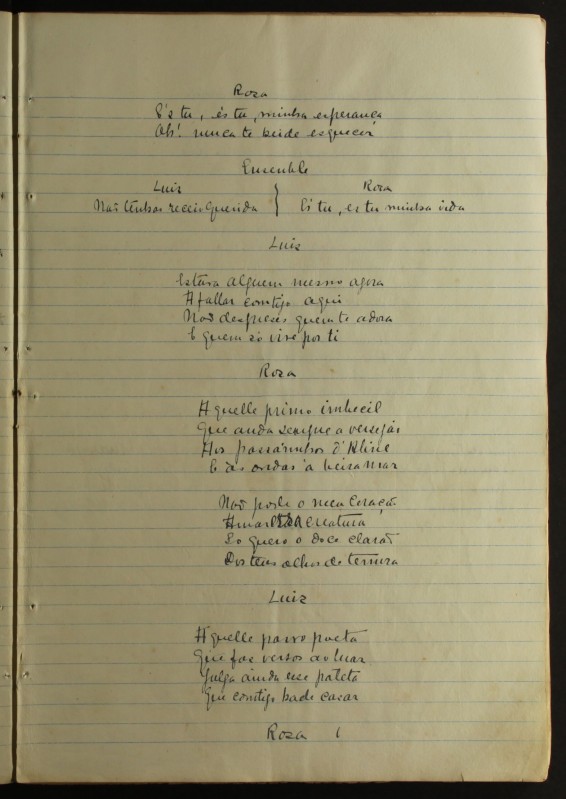 Rosa
És tu, és tu, minha esperança
Ah! nunca te heide esquecer
Ensemble
Luiz
Rosa
Não tenhas receio querida
És tu, es tu minha vida
Luiz
Estava alguem mesmo agora
A fallar comtigo aqui
Não despreses quem te adora
E quem só vive por ti
Rosa
Aquelle primo imbecil
Que anda sempre a versejar
Aos passarinhos
E ás ondas á beira mar
Não pode o meu coração
Amar creatura
So quero o doce clarão
Dos teus olhos de ternura
Luiz
Aquelle parvo poeta
Que faz versos ao luar
Julga ainda esse pateta
Que comtigo hade casar
Rosa